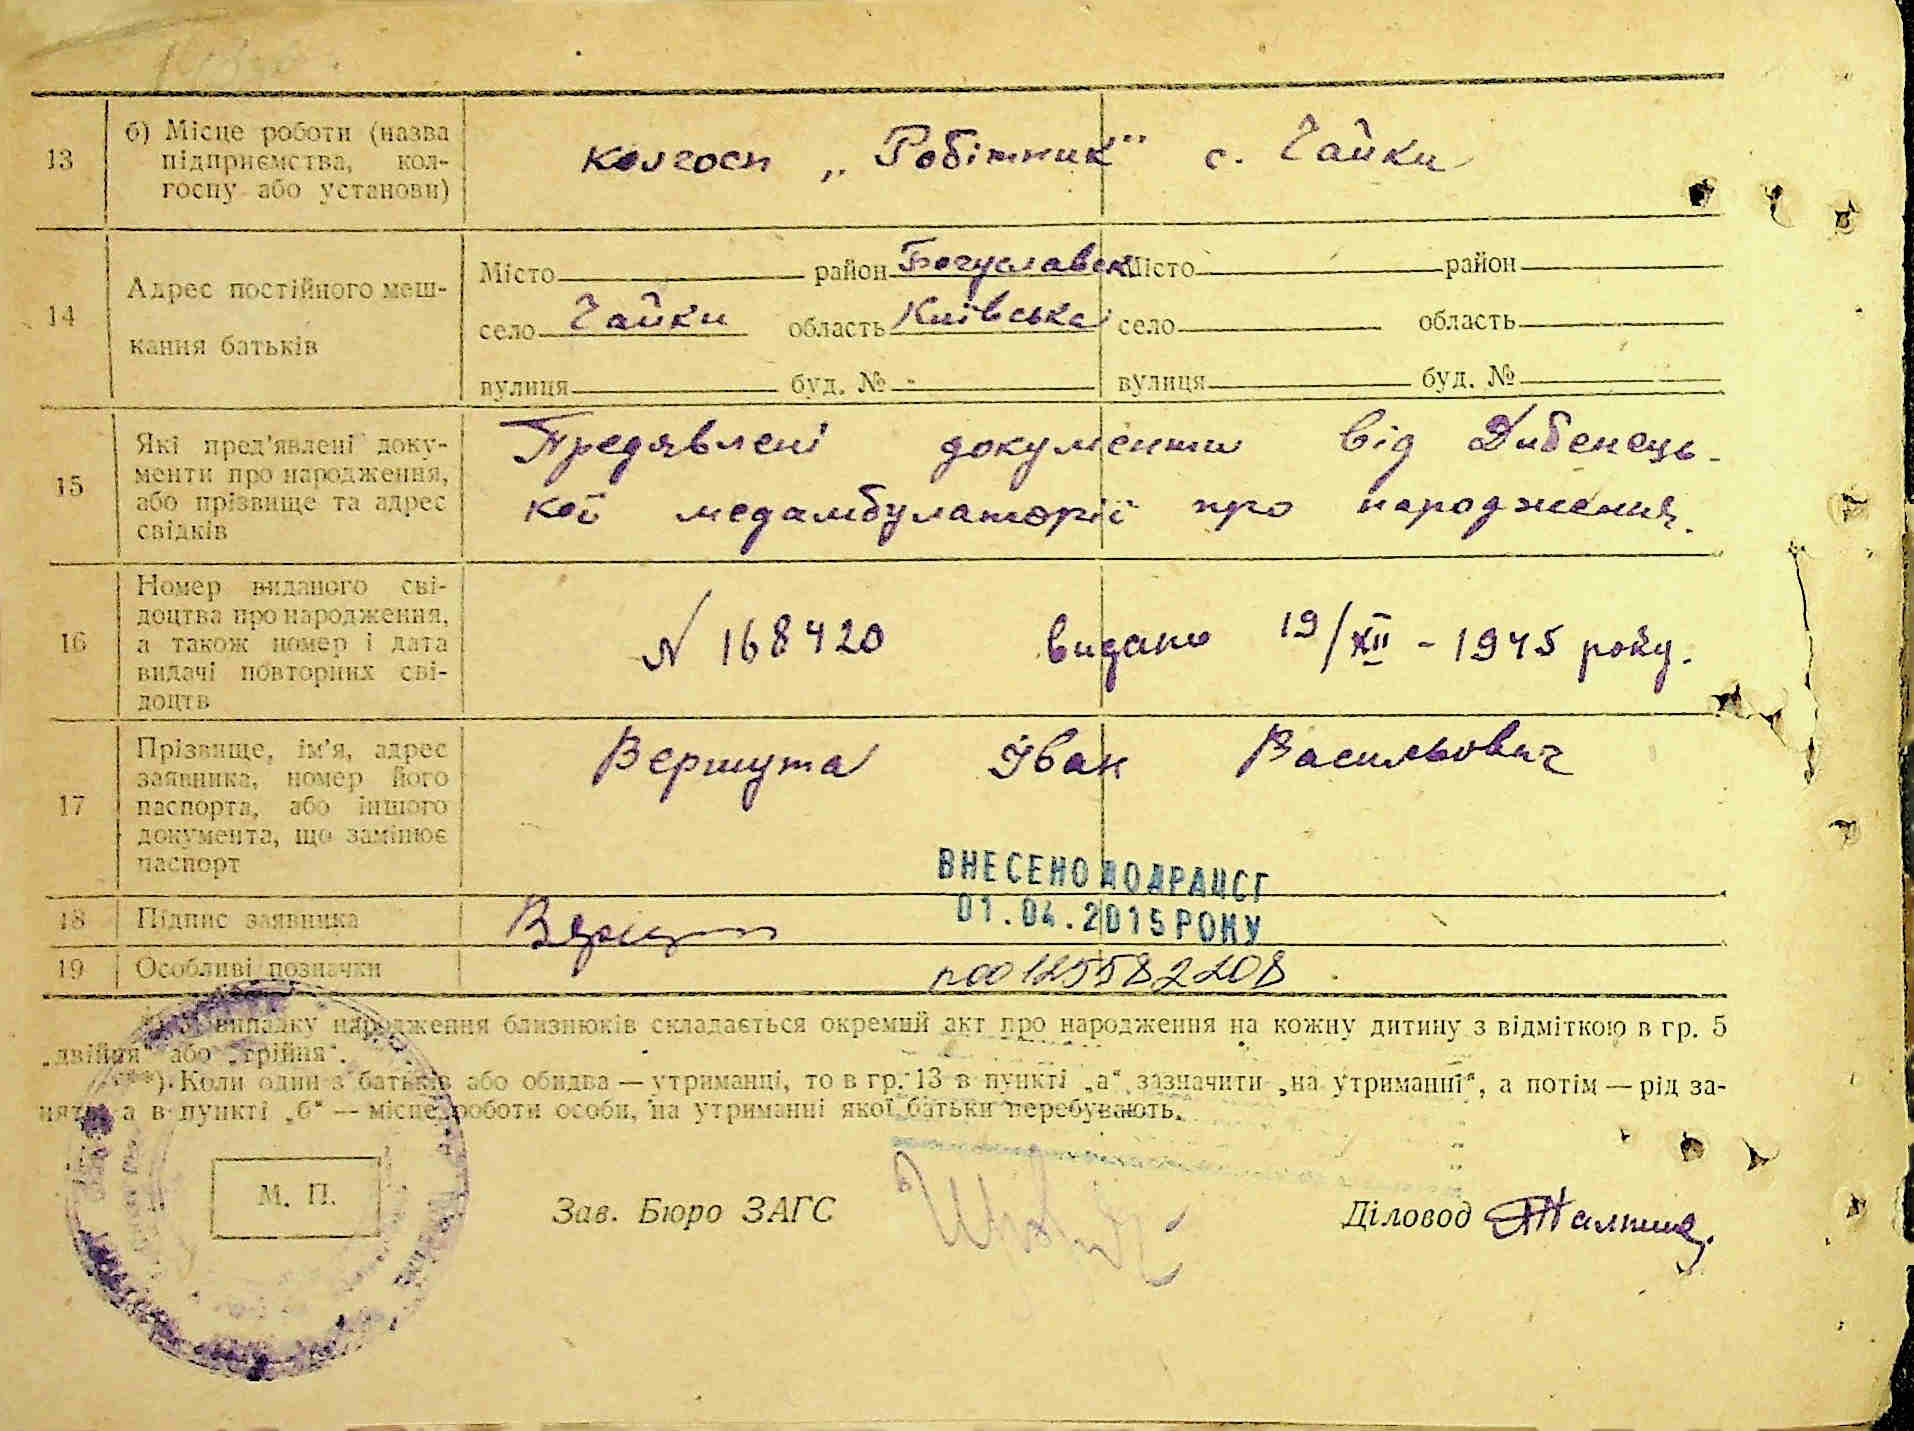 13
б) Місце роботи (назва
підприємства, кол-
госпу або установи)
колгосп „Робітник" с. Чайки
14
Адрес постійного меш-
кання батьків
Місто район Богуславськ Місто район
село Чайки область Київська село область
вулиця буд. № - вулиця буд. №
15
Які пред'явлені доку-
менти про народження,
або прізвище та адрес
свідків
Предявлені документи від Дибенець-
кої медамбулаторії про народження.
16
Номер виданого сві-
доцтва про народження,
а також номер і дата
видачі повторних сві-
доцтв
N 168420 видано 19/XII - 1945 року.
17
Прізвище, ім'я, адрес
заявника, номер його
паспорта, або іншого
документа, що замінює
паспорт
Вершута Іван Васильович
ВНЕСЕНО ДО ДРАЦСГ
01.04.2015 РОКУ
18 Підпис заявника
19 Особливі позначки
00125582208
випадку народження близнюків складається окремий акт про народження на кожну дитину з відміткою в гр. 5
„двійня" або „трійня".
**) Коли один з батьків або обидва — утриманці, то в гр. 13 в пункті „а" зазначити „на утриманні", а потім — рід за-
няття, а в пункті „б" — місце роботи особи, на утриманні якої батьки перебувають.
М. П.
Зав. Бюро ЗАГС
Діловод